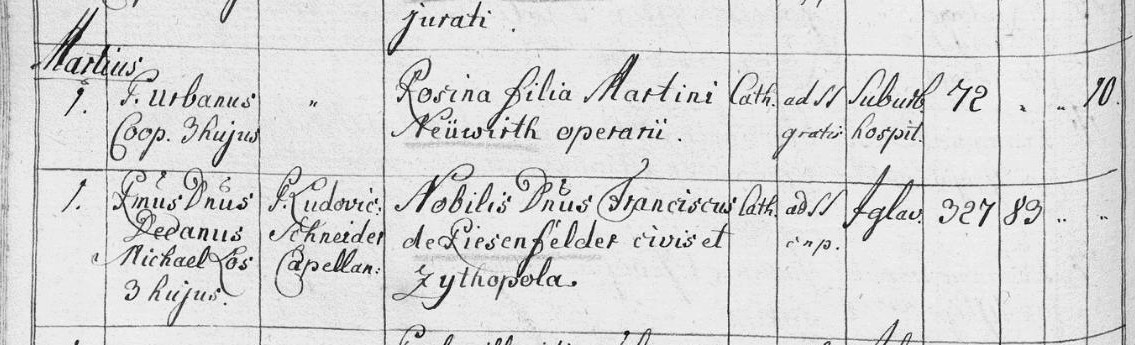 jurati.
Martius
1. P. Urbanus " Rosina filia Martini Cath. ad SS Suburb 72 " " 10.
Coop. 3 hujus Neüwirth operarii. gratis hospit.
1. Rmus Dnus P. Ludovic: Nobilis Dnus Franciscus Cath. ad SS Iglav. 327 83 " "
Decanus Schneider de Riesenfelder civis et
Michael Kos Capellan: Zythopola.
3 hujus.